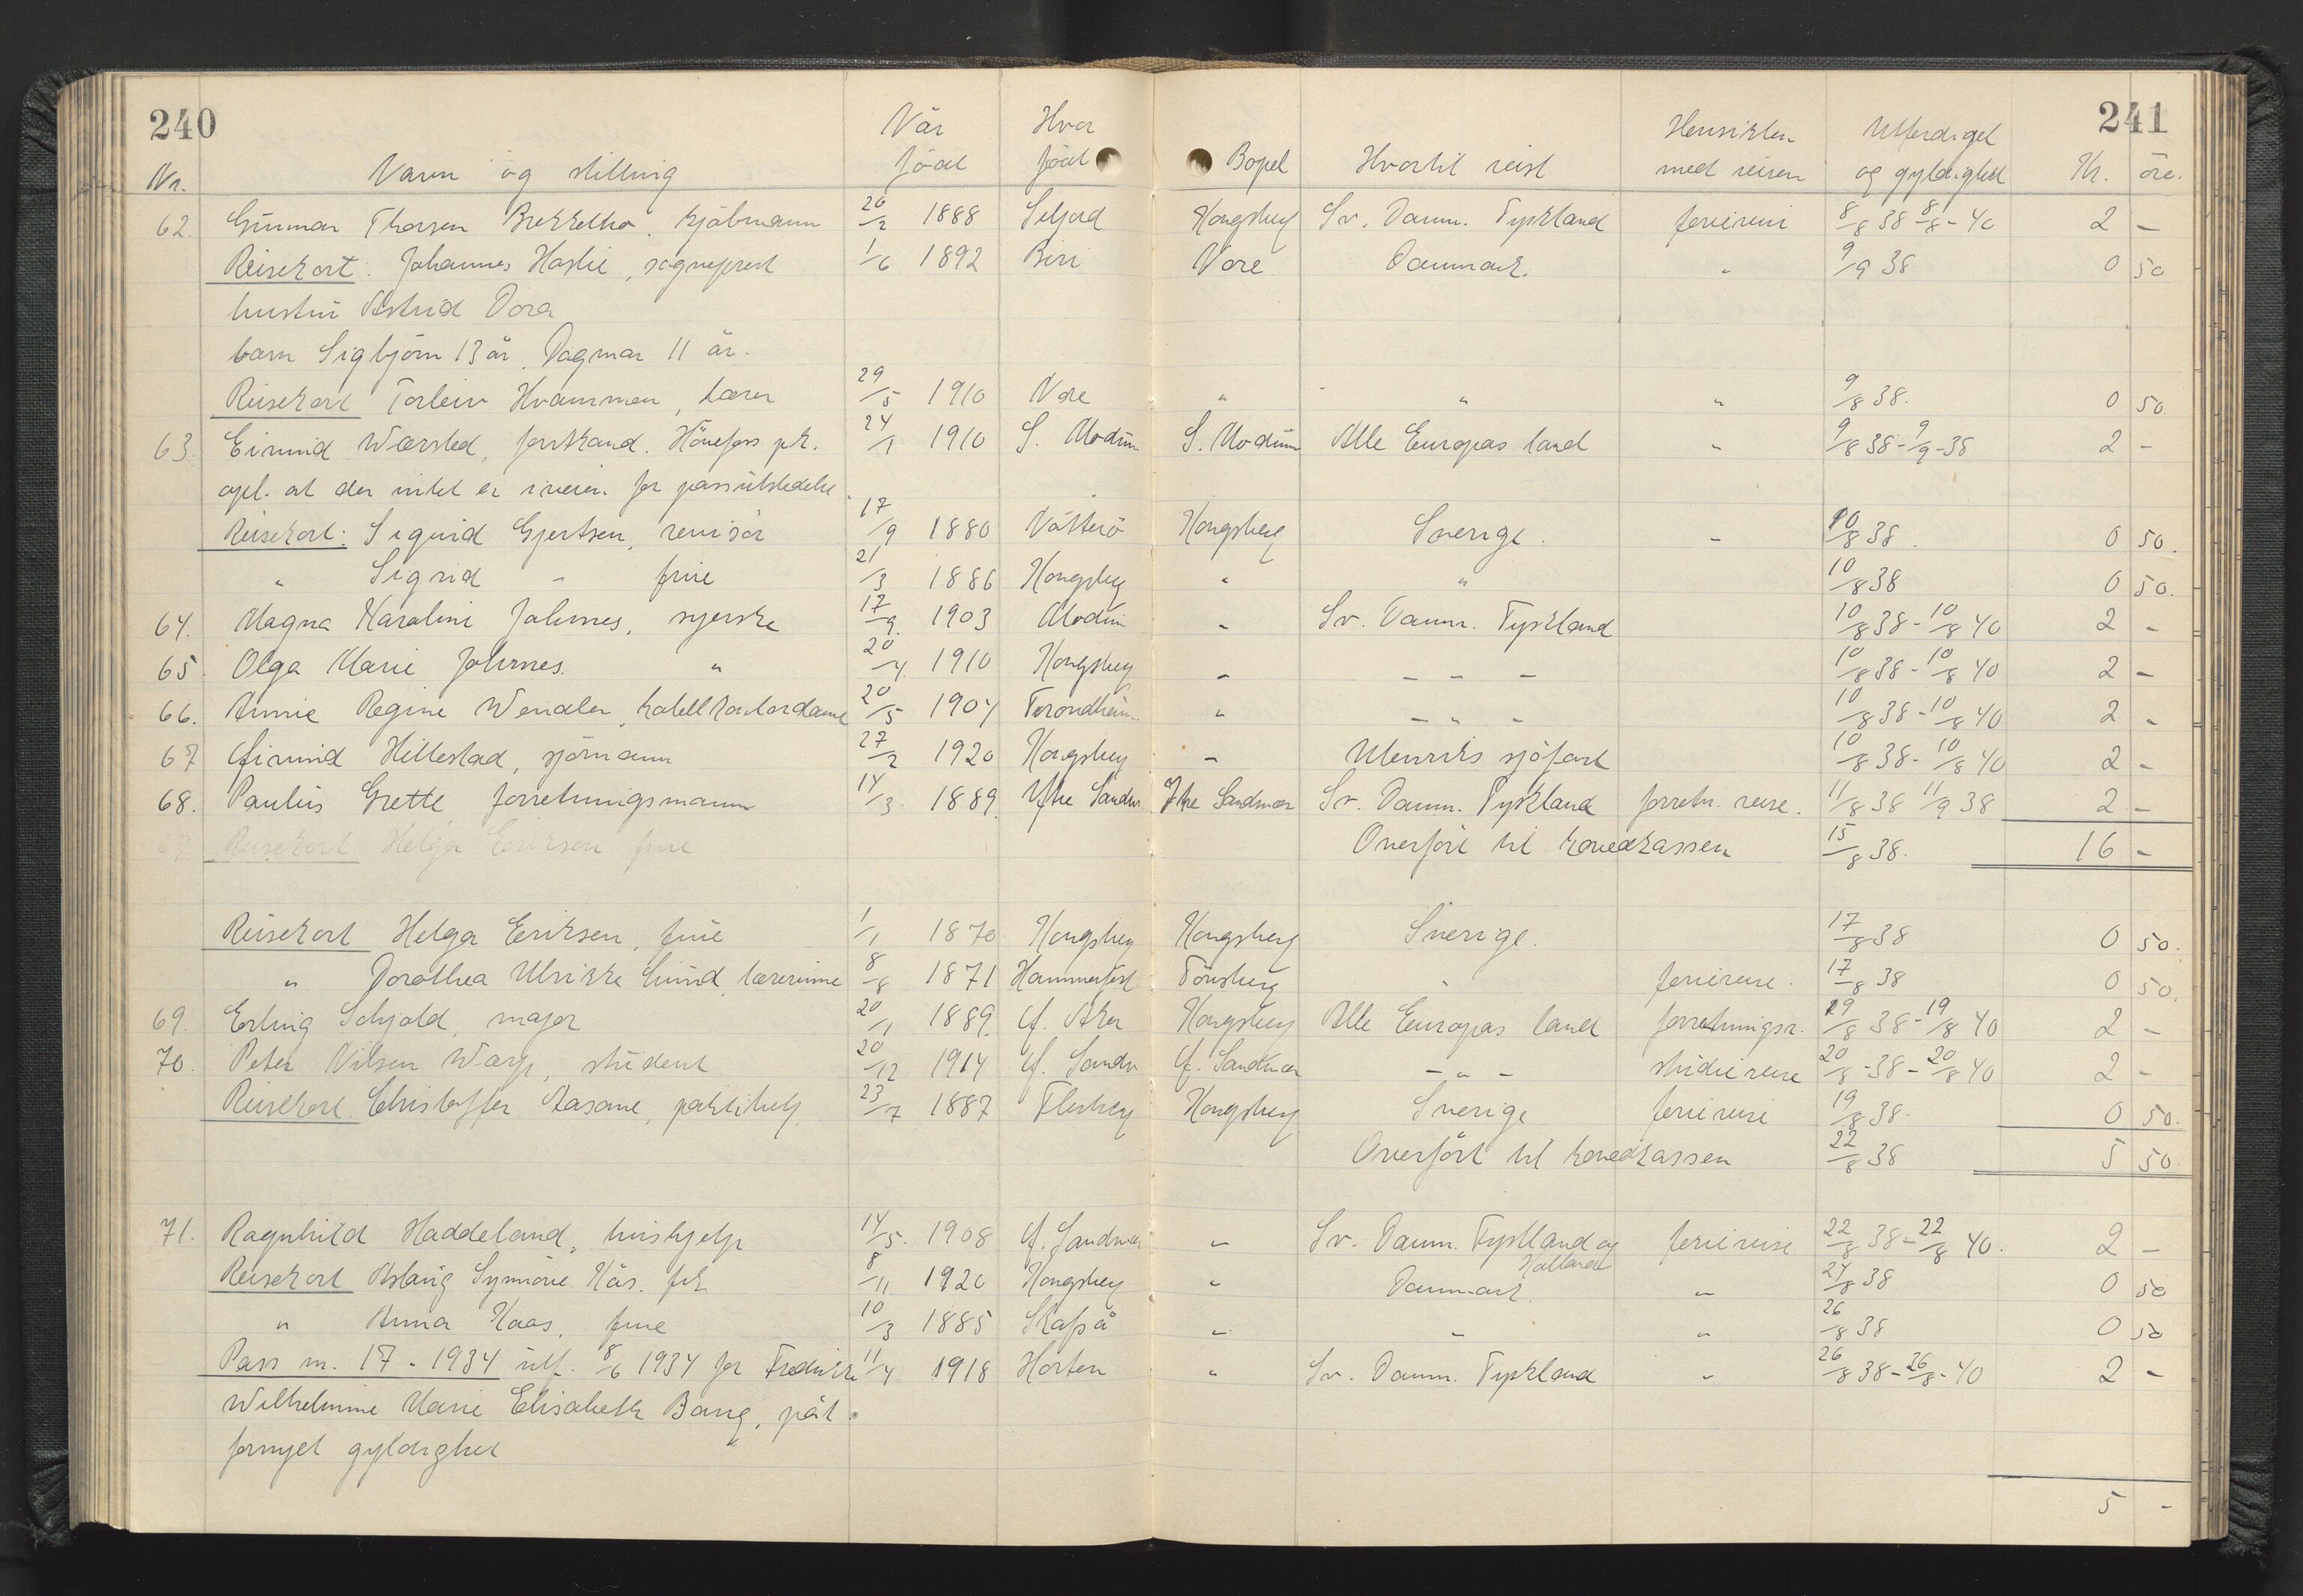 240
241
Nr. Navn og stilling Når född Hvor född Bopel Hvortil reist Hensikten med reisen Utferdiget og gyldighet Kr. öre.
62. Gunnar Thorsen kjöbmann 20/2 1888 Seljord Kongsberg Sv. Danm. Tyskland feriereise 8/8 38 - 8/8 - 40 2 -
Reisekort: Johannes Haslie, sogneprest 1/6 1892 Biri Nore Danmark. " 9/9 38 0 50
hustru Astrid Dora
barn Sigbjörn 13 år. Dagmar 11 år.
Reisekort Torleiv Hvammen, lærer 29/5 1910 Nore " " " 9/8 38. 0 50
63. Eivind Wærsted, forstkand. Hönefoss pk. 24/1 1910 S. Modum S. Modum Alle Europas land " 9/8 38 - 9/9 - 38 2 -
opl. at der intet er i veien for passutstedelse.
Reisekort: Sigurd Gjertsen, revisor 17/9 1880 Nötterö Kongsberg Sverige. - 10/8 38. 0 50.
" Sigrid - frue 21/3 1886 Kongsberg " " 10/8 38 0 50.
64. Magna Karoline Johnnes, syerske 17/9. 1903 Modum " Sv. Danm. Tyskland 10/8 38 - 10/8 40 2 -
65. Olga Marie Johnnes. " 20/4. 1910 Kongsberg " - " - 10/8 38 - 10/8 40 2 -
66. Annie Regine Wendler, hotellkontordame 20/5 1907 Trondheim " - " - 10/8 38 - 10/8 40 2 -
67 Eivind Hillestad, sjömann 27/2 1920 Kongsberg " Utenriks sjöfart 10/8 38 - 10/8 40 2 -
68. Paulus Grette, forretningsmann 14/3. 1889. Ytre Sandsv. Ytre Sandsvær Sv. Danm. Tyskland forretn. reise. 11/8 38 11/9 38 2 -
Reisekort Helga Eriksen frue Overfört til hovedkassen 15/8 38. 16 -
Reisekort Helga Eriksen, frue 1/1 1870 Kongsberg Kongsberg Sverige. 17/8 38 0 50.
" Dorothea Ulrikke Lund, lærerinne 8/8 1871 Hammerfest Tönsberg " feriereise. 17/8 38 0 50.
69. Erling Schjold, major 20/1 1889. V. Aker Kongsberg Alle Europas land forretningsr. 19/8 38 - 19/8 40 2 -
70. Peter Nilsen Warp, student 20/12 1914 Y. Sandsv Y. Sandsvær - " - studiereise 20/8 - 38 - 20/8 40 2 -
Reisekort Christoffer Aasane, politibetj. 23/7 1887 Flesberg Kongsberg Sverige feriereise 19/8 38. 0 50.
Overfört til hovedkassen 22/8 38 5 50.
71. Ragnhild Haddeland, hushjelp 14/5. 1908 Y. Sandsvær " Sv. Danm. Tyskland og Holland feriereise 22/8 38 - 22/8 40. 2 -
Reisekort Aslaug Synnöve Kås. frk 8/11 1920 Kongsberg " Danmark. " 24/8 38 0 50
" Anna Kaas, frue 10/3 1885 Skafså " " " 26/8 38 0 50
Pass nr. 17 - 1934 utf. 8/6 1934 for Fredrikke 11/4 1918 Horten " Sv. Danm. Tyskland " 26/8 38 - 26/8 - 40 2 -
Wilhelmine Marie Elisabeth Bang, påt.
fornyet gyldighet
5 -